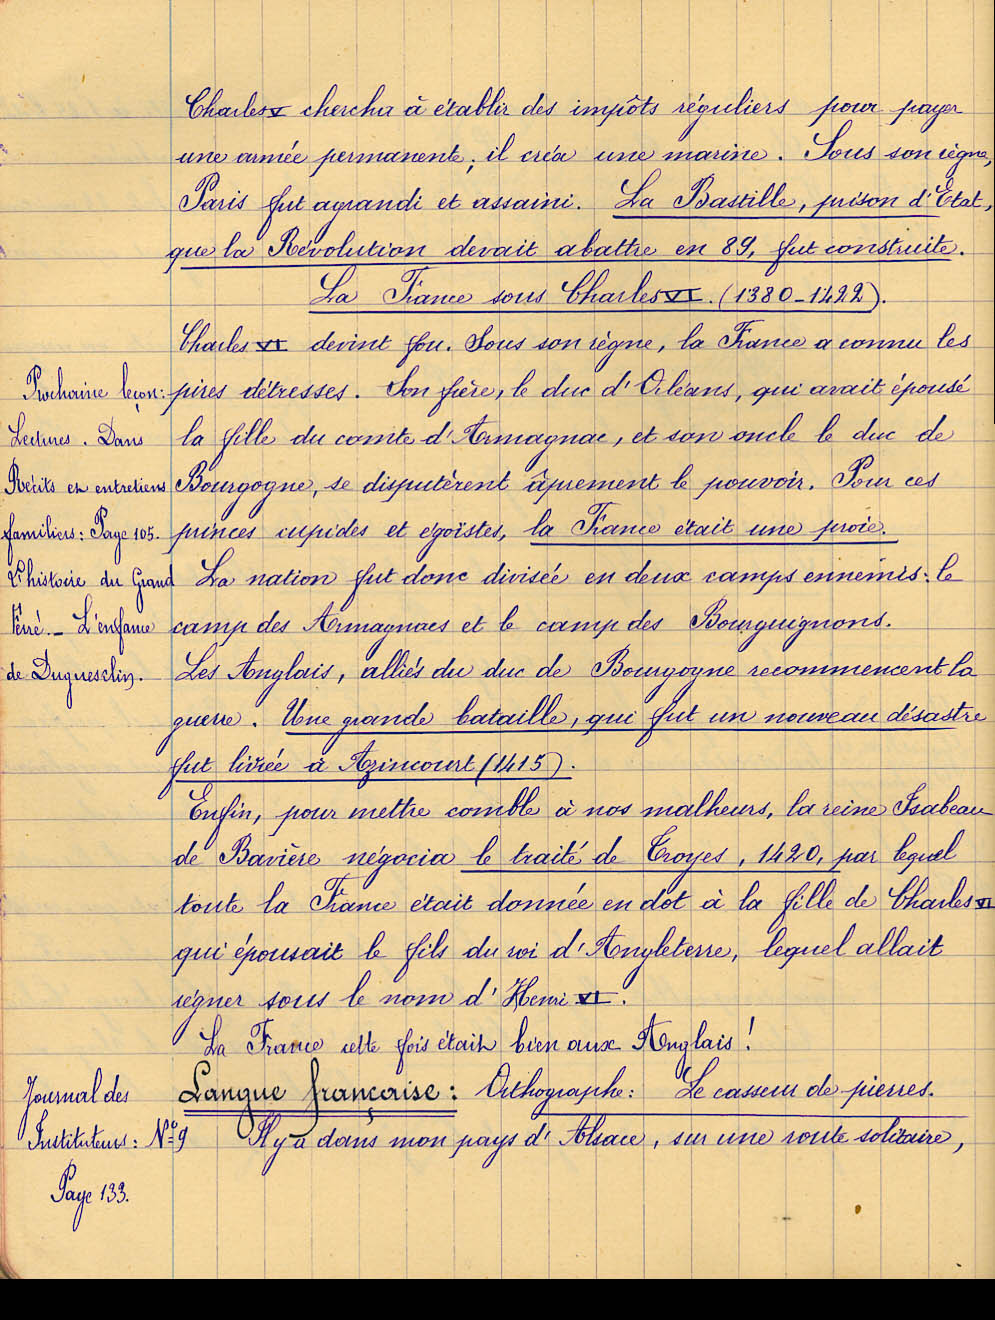 Charles V chercha à établir des impôts réguliers pour payer
une armée permanente, il créa une marine. Sous son règne,
Paris fut agrandi et assaini. La Bastille, prison d'Etat,
que la Révolution devait abattre en 89, fut construite.
La France sous Charles VI. (1380-1422).
Charles VI devint fou. Sous son règne, la France a connu les
pires détresses. Son frère, le duc d'Orléans, qui avait épousé
la fille du comte d'Armagnac, et son oncle le duc de
Bourgogne, se disputèrent âprement le pouvoir. Pour ces
princes cupides et egoïstes, la France était une proie.
La nation fut donc divisée en deux camps ennemis: le
camp des Armagnacs et le camp des Bourguignons.
Les Anglais, alliés du duc de Bourgogne recommencent la
guerre. Une grande bataille, qui fut un nouveau désastre
fut livrée à Azincourt (1415).
Enfin, pour mettre comble à nos malheurs, la reine Isabeau
de Bavière négocia le traité de Troyes, 1420, par lequel
toute la France était donnée en dot à la fille de Charles VI
qui épousait le fils du roi d'Angleterre, lequel allait
régner sous le nom d'Henri VI.
La France cette fois était bien aux Anglais!
Prochaine leçon:
Lectures. Dans
Récits et entretiens
familiers: Page 105.
L'histoire du Grand
Ferré. - L'enfance
de Duguesclin.
Langue française: Orthographe: Le casseur de pierres.
Il y a dans mon pays d'Alsace, sur une route solitaire,
Journal des
Instituteurs: Nº 9
Page 133.